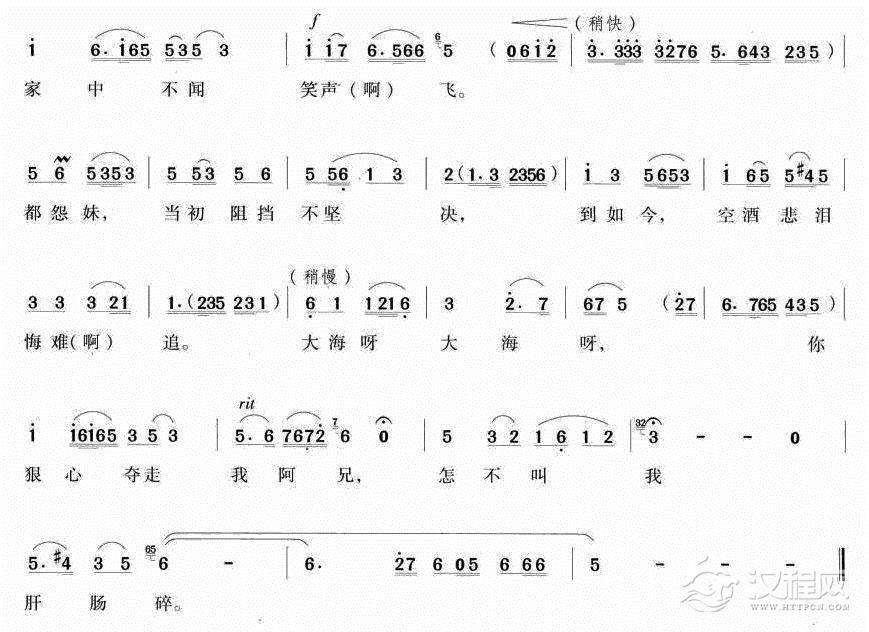 f （稍快）
i 6.i65 535 3 | i i7 6.566 6 5 （06i2 | 3.333 3276 5.643 235） |
家 中 不 闻 笑 声（啊） 飞。
5 6 5353 | 5 53 5 6 | 5 56 1 3 | 2（1.3 2356） | i 3 5653 | i 65 5#45 |
都 怨 妹， 当 初 阻 挡 不 坚 决， 到 如 今， 空 洒 悲 泪
（稍慢）
3 3 3 21 | 1.（235 231） | 6 1 1216 | 3 2.7 | 67 5 （27 | 6.765 435） |
悔 难（啊） 追。 大 海 呀 大 海 呀， 你
rit
i i6i65 3 5 3 | 5.6 7672 7 6 0 | 5 32 1 6 1 2 | 32 3 - - 0 |
狠 心 夺 走 我 阿 兄， 怎 不 叫 我
5.#4 3 5 65 6 - | 6. 27 6 05 6 66 | 5 - - - ‖
肝 肠 碎。
汉程网
WWW.HTTPCN.COM